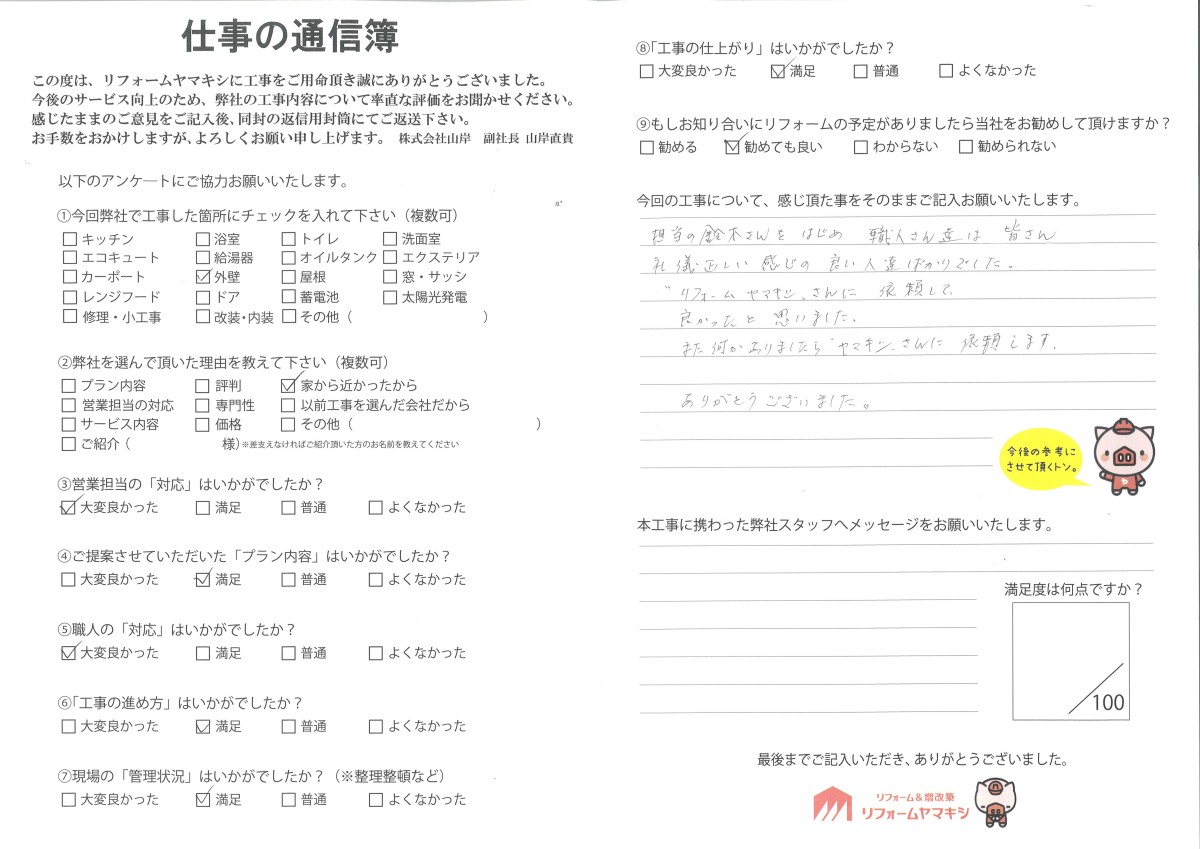 仕事の通信簿
この度は、リフォームヤマキシに工事をご用命頂き誠にありがとうございました。
今後のサービス向上のため、弊社の工事内容について率直な評価をお聞かせください。
感じたままのご意見をご記入後、同封の返信用封筒にてご返送下さい。
お手数をおかけしますが、よろしくお願い申し上げます。 株式会社山岸 副社長 山岸直貴
以下のアンケートにご協力お願いいたします。
①今回弊社で工事した箇所にチェックを入れて下さい（複数可）
□ キッチン □ 浴室 □ トイレ □ 洗面室
□ エコキュート □ 給湯器 □ オイルタンク □ エクステリア
□ カーポート ☑ 外壁 □ 屋根 □ 窓・サッシ
□ レンジフード □ ドア □ 蓄電池 □ 太陽光発電
□ 修理・小工事 □ 改装・内装 □ その他（ ）
②弊社を選んで頂いた理由を教えて下さい（複数可）
□ プラン内容 □ 評判 ☑ 家から近かったから
□ 営業担当の対応 □ 専門性 □ 以前工事を選んだ会社だから
□ サービス内容 □ 価格 □ その他（ ）
□ ご紹介（ 様）※差支えなければご紹介頂いた方のお名前を教えてください
③営業担当の「対応」はいかがでしたか？
☑ 大変良かった □ 満足 □ 普通 □ よくなかった
④ご提案させていただいた「プラン内容」はいかがでしたか？
□ 大変良かった ☑ 満足 □ 普通 □ よくなかった
⑤職人の「対応」はいかがでしたか？
☑ 大変良かった □ 満足 □ 普通 □ よくなかった
⑥「工事の進め方」はいかがでしたか？
□ 大変良かった ☑ 満足 □ 普通 □ よくなかった
⑦現場の「管理状況」はいかがでしたか？（※整理整頓など）
□ 大変良かった ☑ 満足 □ 普通 □ よくなかった
⑧「工事の仕上がり」はいかがでしたか？
□ 大変良かった ☑ 満足 □ 普通 □ よくなかった
⑨もしお知り合いにリフォームの予定がありましたら当社をお勧めして頂けますか？
□ 勧める ☑ 勧めても良い □ わからない □ 勧められない
今回の工事について、感じ頂た事をそのままご記入お願いいたします。
担当の鈴木さんをはじめ 職人さん達は 皆さん
礼儀正しい感じの良い人達ばかりでした。
"リフォームヤマキシ"さんに 依頼して
良かったと思いました。
また何かありましたら"ヤマキシ"さんに 依頼します。
ありがとうございました。
今後の参考に
させて頂くトン。
本工事に携わった弊社スタッフへメッセージをお願いいたします。
満足度は何点ですか？
100
最後までご記入いただき、ありがとうございました。
リフォーム&増改築
リフォームヤマキシ